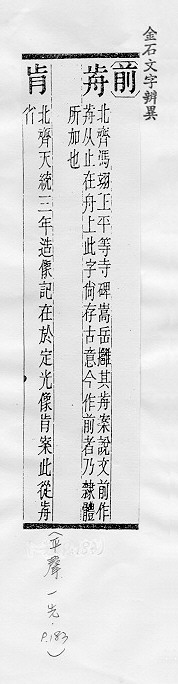 金石文字辨異
前
歬
北齊馮翊王平等寺碑嵩岳離其歬案說文前作
歬从止在舟上此字尙存古意今作前者乃隸體
所加也
肯
北齊天統三年造像記在於定光像肯案此從歬
省
(平聲 一先. P.183)